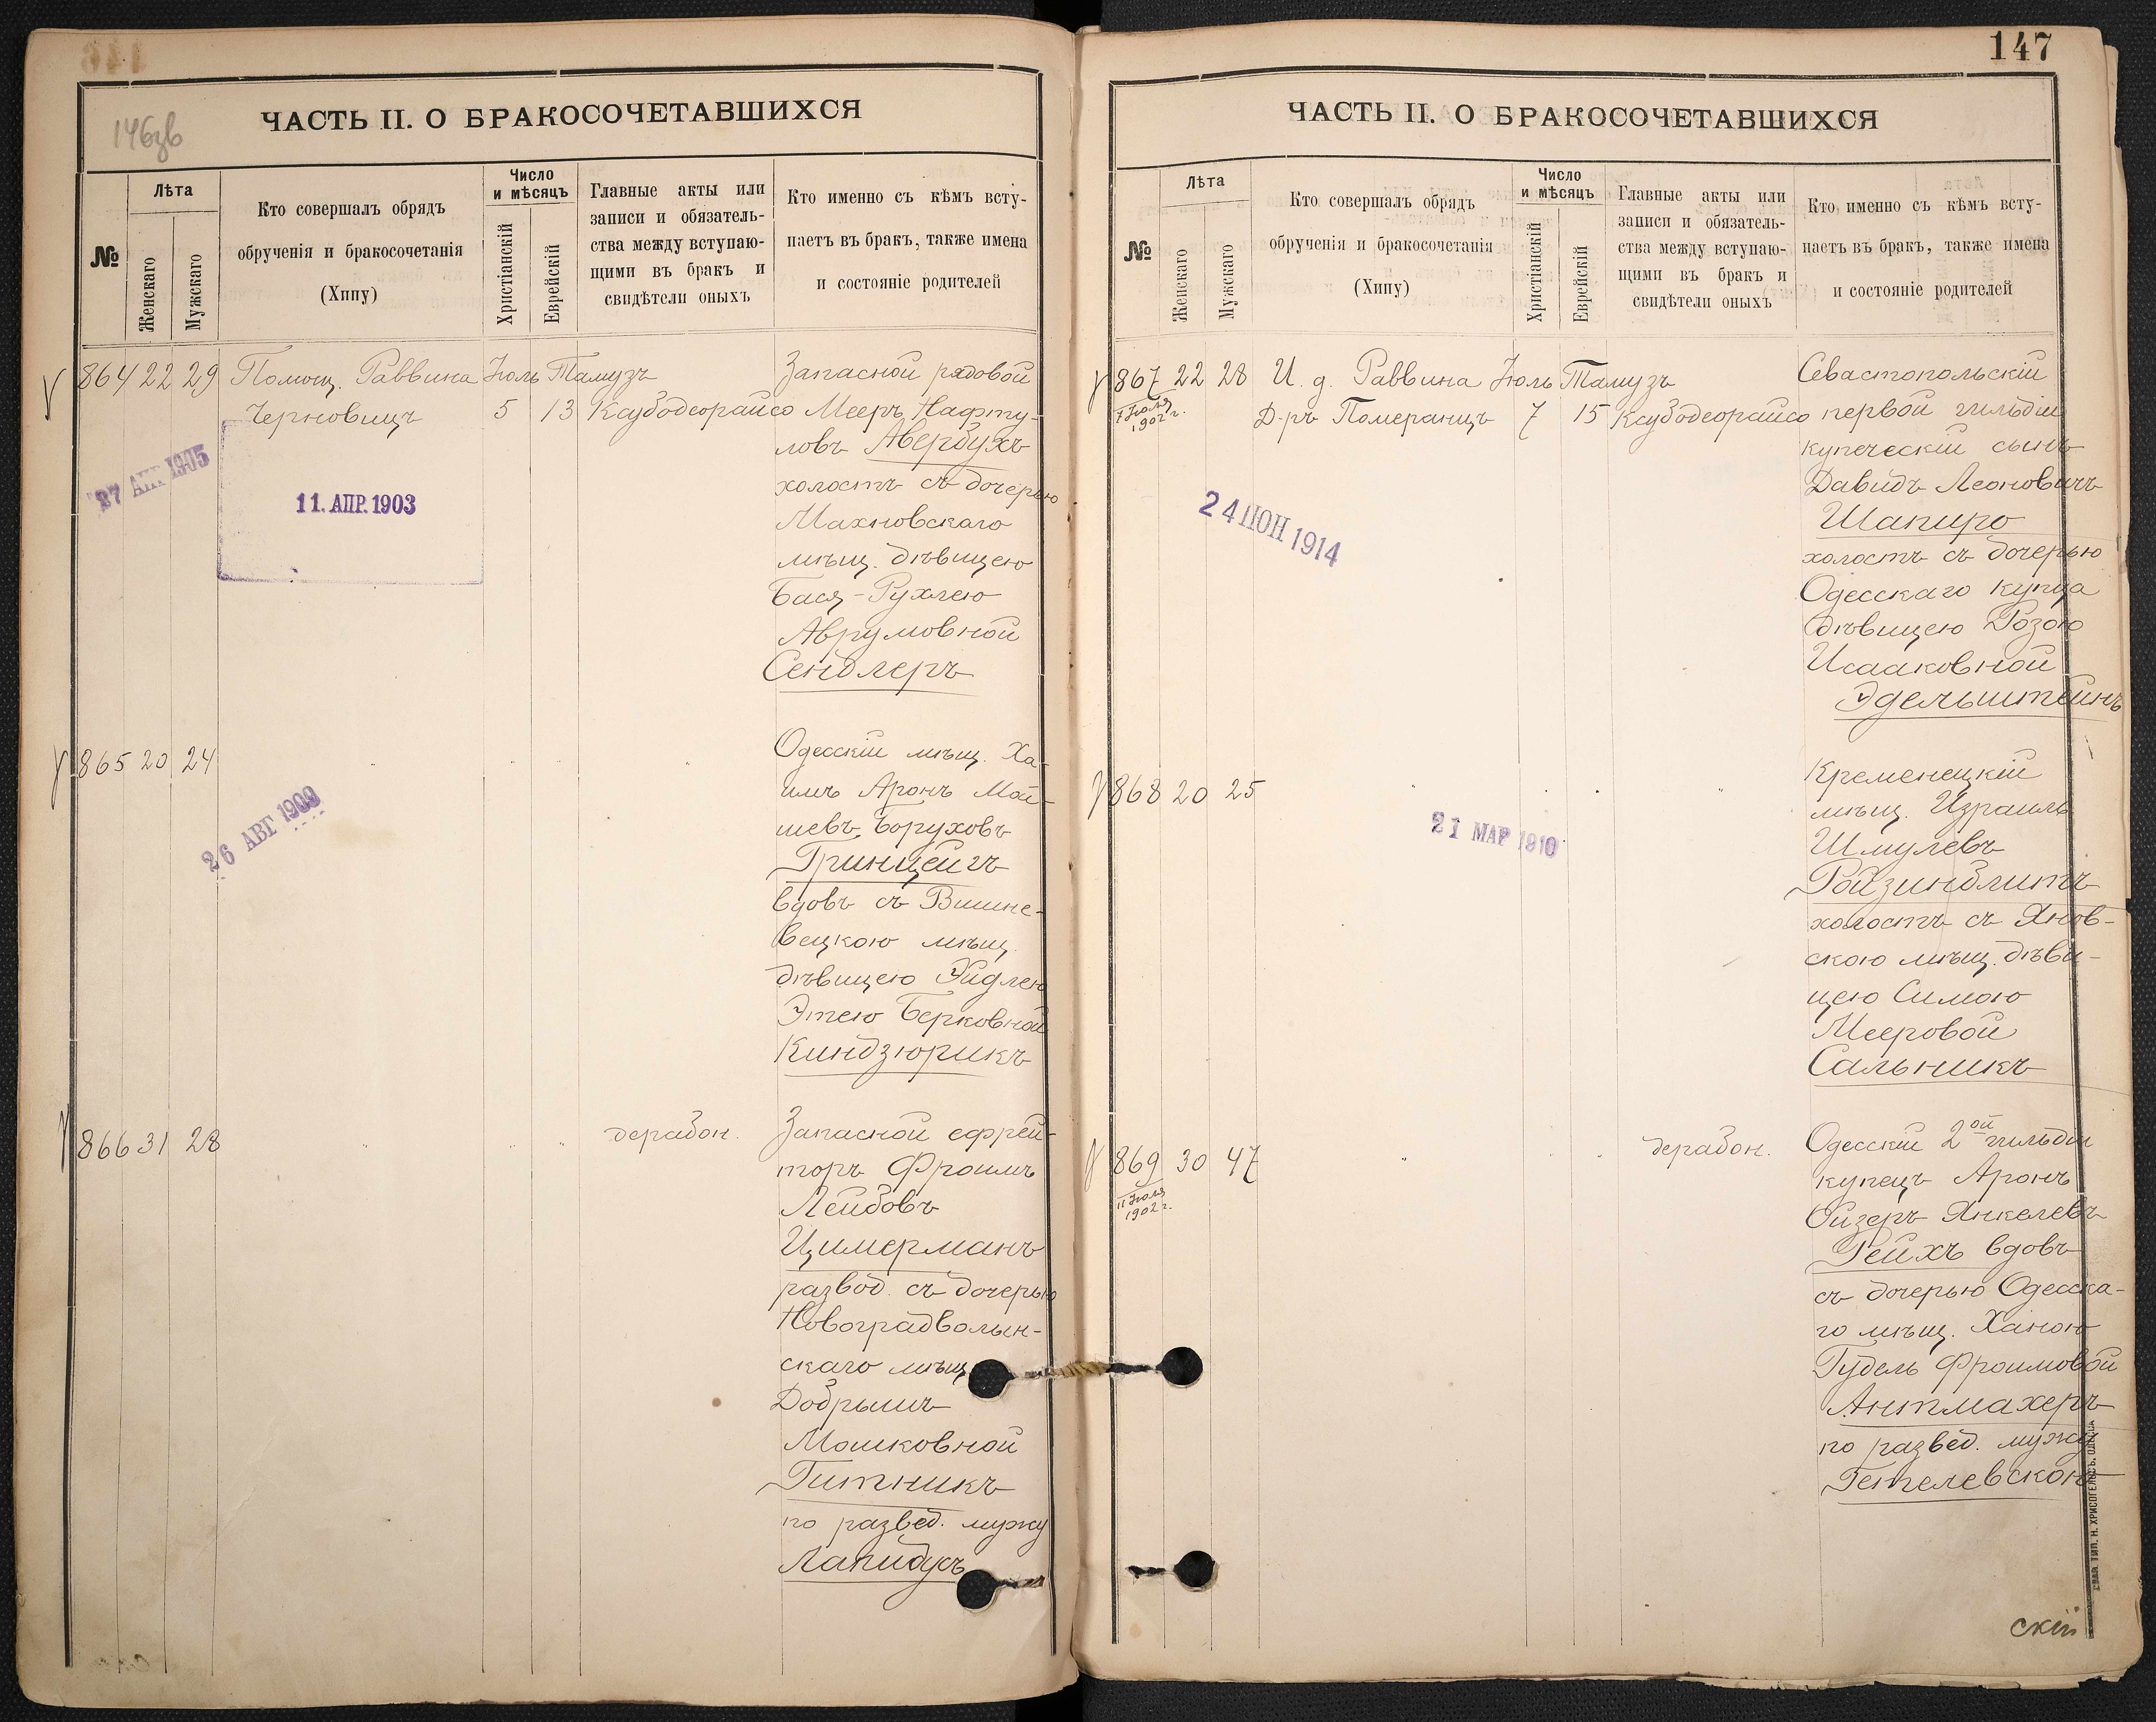 146зв
ЧАСТЬ II. О БРАКОСОЧЕТАВШИХСЯ
№
Лѣта
Женскаго
Мужскаго
Кто совершалъ обрядъ
обрученія и бракосочетанія
(Хипу)
Число
и мѣсяцъ
Христіанскій
Еврейскій
Главные акты или
записи и обязатель-
ства между вступаю-
щими въ бракъ и
свидѣтели оныхъ
Кто именно съ кѣмъ всту-
паетъ въ бракъ, также имена
и состояніе родителей
864 22 29 Помощ. Раввина Іюль Тамузъ
Черновицъ 5 13 Ксубодеорайсо
Запасной рядовой
Мееръ Нафту-
ловъ Авербухъ
холостъ съ дочерью
Махновскаго
мѣщ. дѣвицею
Бася-Рухлею
Аврумовной
Сендлеръ
27 АПР 1905
11. АПР. 1903
865 20 24 " " " "
Одесскій мѣщ. Ха-
имъ Аронъ Мой-
шевъ Боруховъ
Гринцейгъ
вдовъ съ Вишне-
вецкою мѣщ.
дѣвицею Эйдлею
Этею Берковной
Киндзюрикъ
26 АВГ 1909
866 31 28 " " " дерабон.
Запасной ефрей-
торъ Фроимъ
Лейбовъ
Цимерманъ
развод. съ дочерью
Новоградволын-
скаго мѣщ.
Добрышъ
Мошковной
Гитникъ
по развед. мужу
Лапидусъ
147
ЧАСТЬ II. О БРАКОСОЧЕТАВШИХСЯ
№
Лѣта
Женскаго
Мужскаго
Кто совершалъ обрядъ
обрученія и бракосочетанія
(Хипу)
Число
и мѣсяцъ
Христіанскій
Еврейскій
Главные акты или
записи и обязатель-
ства между вступаю-
щими въ бракъ и
свидѣтели оныхъ
Кто именно съ кѣмъ всту-
паетъ въ бракъ, также имена
и состояніе родителей
867 22 28 И. д. Раввина Іюль Тамузъ
Д-ръ Померанцъ 7 15 Ксубодеорайсо
Іюля
1902 г.
Севастопольскій
первой гильдіи
купеческій сынъ
Давидъ Леоновичъ
Шапиро
холостъ съ дочерью
Одесскаго купца
дѣвицею Розою
Исааковной
Эдельштейнъ
24 ІЮН 1914
868 20 25 " " "
Кременецкій
мѣщ. Израиль
Шмулевъ
Ройзинблитъ
холостъ съ Янов-
скою мѣщ. дѣви-
цею Симою
Мееровой
Сальникъ
21 МАР 1910
869 30 47 " " дерабон.
11 Іюля
1902 г.
Одесскій 2ой гильдіи
купецъ Аронъ
Ойзеръ Янкелевъ
Рейхъ вдовъ
съ дочерью Одесска-
го мѣщ. Ханою
Гудель Фроимовой
Антмахеръ
по развед. мужу
скій